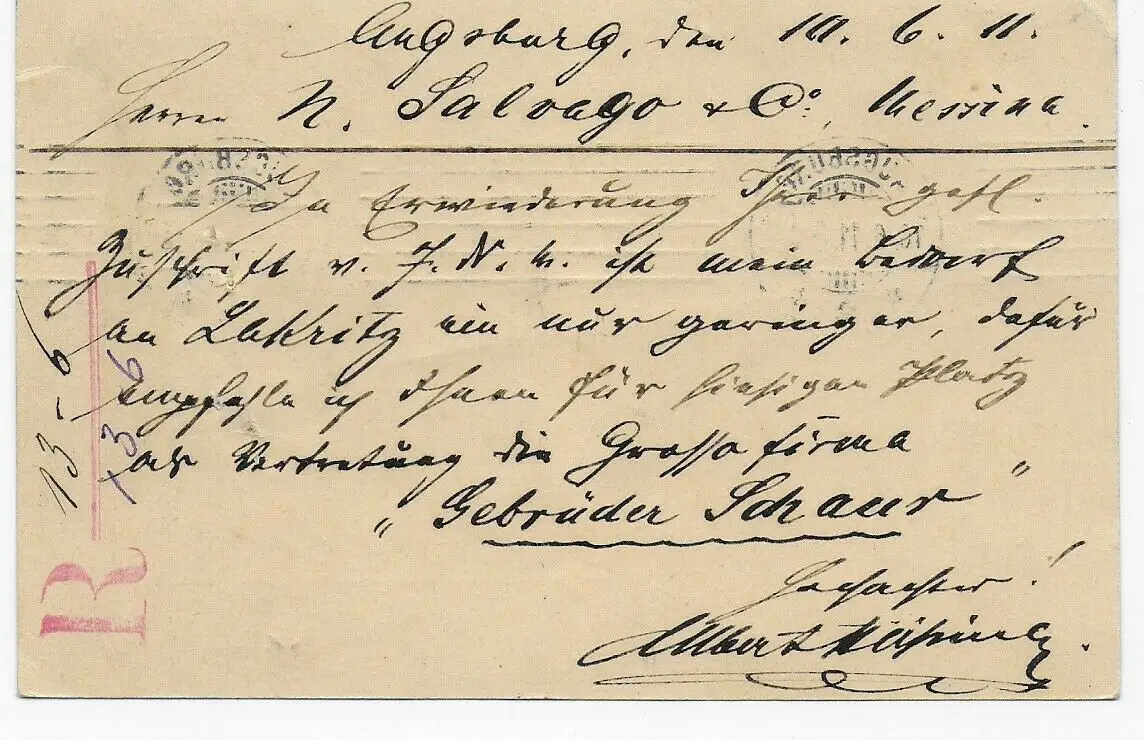 Augsburg, den 10. 6. 11.
Herren N. Salvago & Co., Messina.
In Erwiederung Ihrer gefl.
Zuschrift v. 7. d. M. ist mein Bedarf
an Lakritz ein nur geringer, dafür
empfehle ich Ihnen für hiesigen Platz
als Vertretung die Grosso firma
„Gebrüder Schaur"
Hochachtend!
Albert
13-6
13 6
R